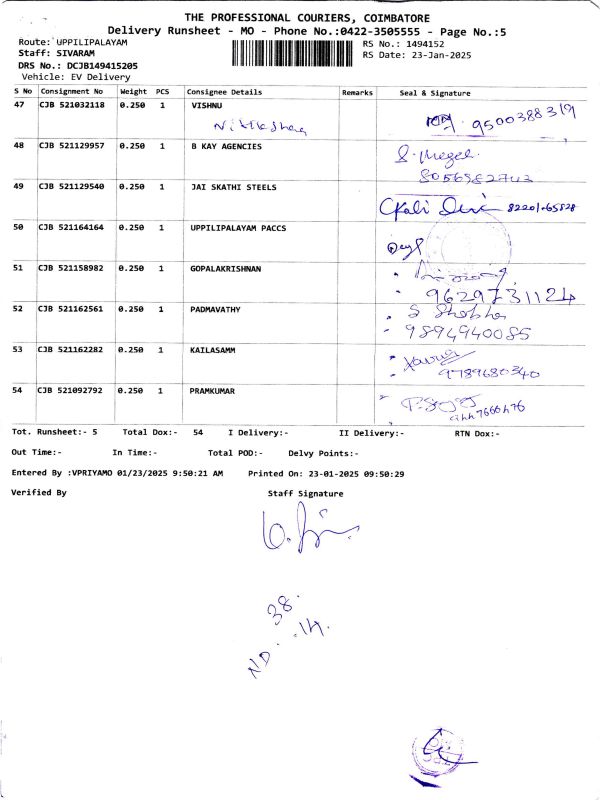 THE PROFESSIONAL COURIERS, COIMBATORE
Delivery Runsheet - MO - Phone No.:0422-3505555 - Page No.:5
Route: UPPILIPALAYAM RS No.: 1494152
Staff: SIVARAM RS Date: 23-Jan-2025
DRS No.: DCJB149415205
Vehicle: EV Delivery
S No Consignment No Weight PCS Consignee Details Remarks Seal & Signature
47 CJB 521032118 0.250 1 VISHNU
9500388319
48 CJB 521129957 0.250 1 B KAY AGENCIES
8056982743
49 CJB 521129540 0.250 1 JAI SKATHI STEELS
Kali
50 CJB 521164164 0.250 1 UPPILIPALAYAM PACCS
51 CJB 521158982 0.250 1 GOPALAKRISHNAN
9629731124
52 CJB 521162561 0.250 1 PADMAVATHY
S Shobha
9894940085
53 CJB 521162282 0.250 1 KAILASAMM
9789680340
54 CJB 521092792 0.250 1 PRAMKUMAR
Tot. Runsheet:- 5 Total Dox:- 54 I Delivery:- II Delivery:- RTN Dox:-
Out Time:- In Time:- Total POD:- Delvy Points:-
Entered By :VPRIYAMO 01/23/2025 9:50:21 AM Printed On: 23-01-2025 09:50:29
Verified By Staff Signature
38
ND 14